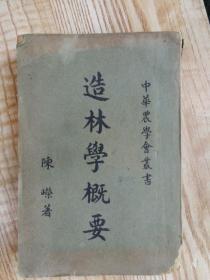 中華農學會叢書
造林學概要
陳嶸著